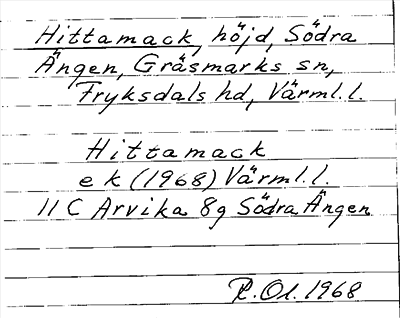 Hittamack, höjd, Södra
Ängen, Gräsmarks sn,
Fryksdals hd, Värml. l.
Hittamack
e k (1968) Värml. l.
11 C Arvika 8g Södra Ängen
R. O1. 1968